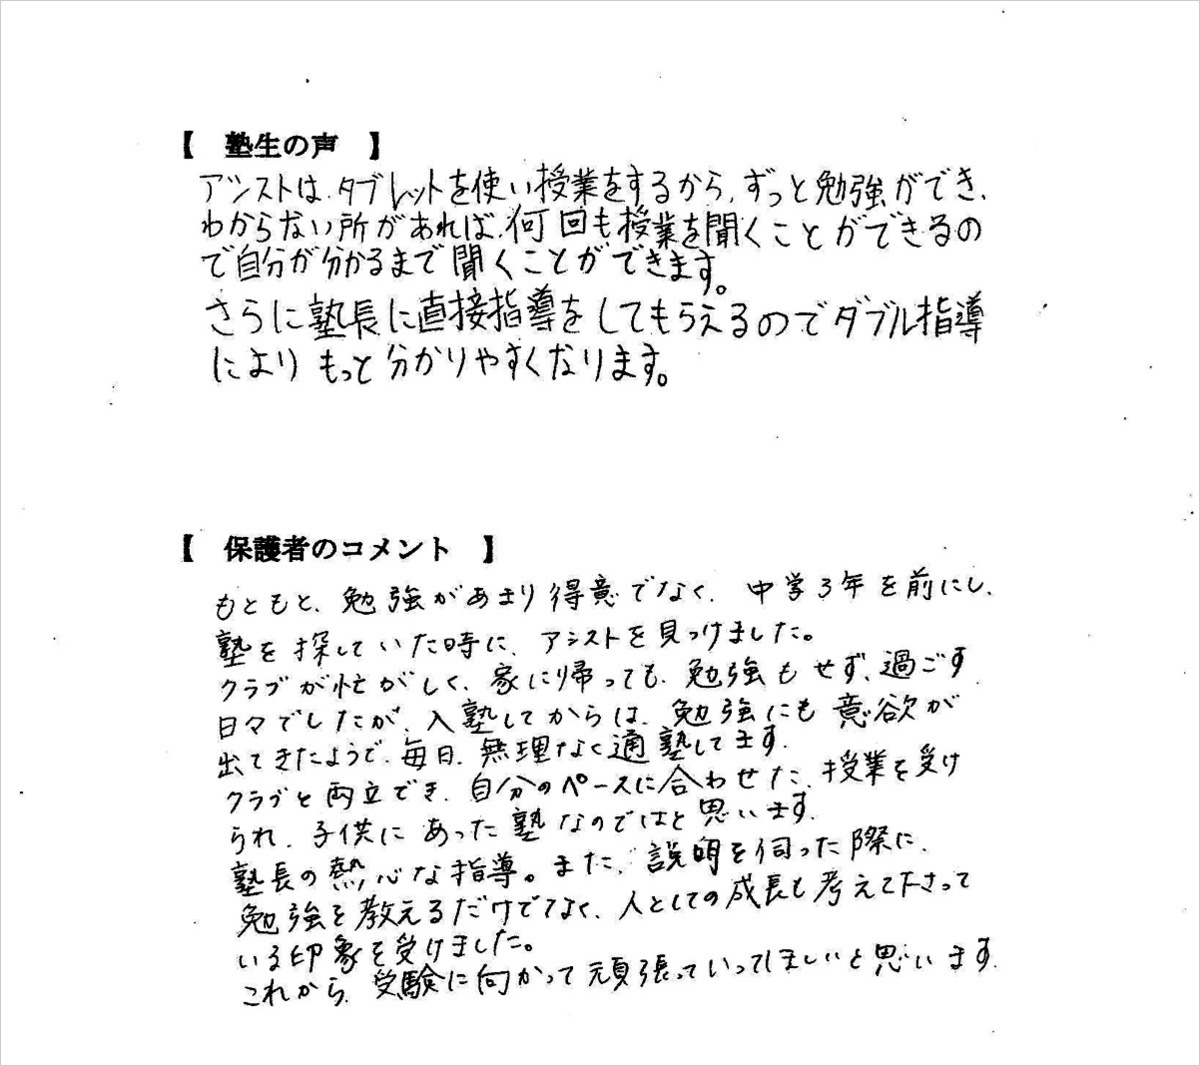 【 塾生の声 】
アシストは、タブレットを使い授業をするから、ずっと勉強ができ、
わからない所があれば、何回も授業を聞くことができるの
で自分が分かるまで聞くことができます。
さらに塾長に直接指導をしてもらえるのでダブル指導
によりもっと分かりやすくなります。
【 保護者のコメント 】
もともと、勉強があまり得意でなく、中学3年を前にし、
塾を探していた時に、アシストを見つけました。
クラブが忙がしく、家に帰っても、勉強もせず、過ごす
日々でしたが、入塾してからは、勉強にも意欲が
出てきたようで、毎日、無理なく通塾してます。
クラブと両立でき、自分のペースに合わせた、授業を受け
られ、子供にあった塾なのではと思います。
塾長の熱心な指導。また、説明を伺った際に、
勉強を教えるだけでなく、人としての成長も考えて下さって
いる印象を受けました。
これから、受験に向かって頑張っていってほしいと思います。